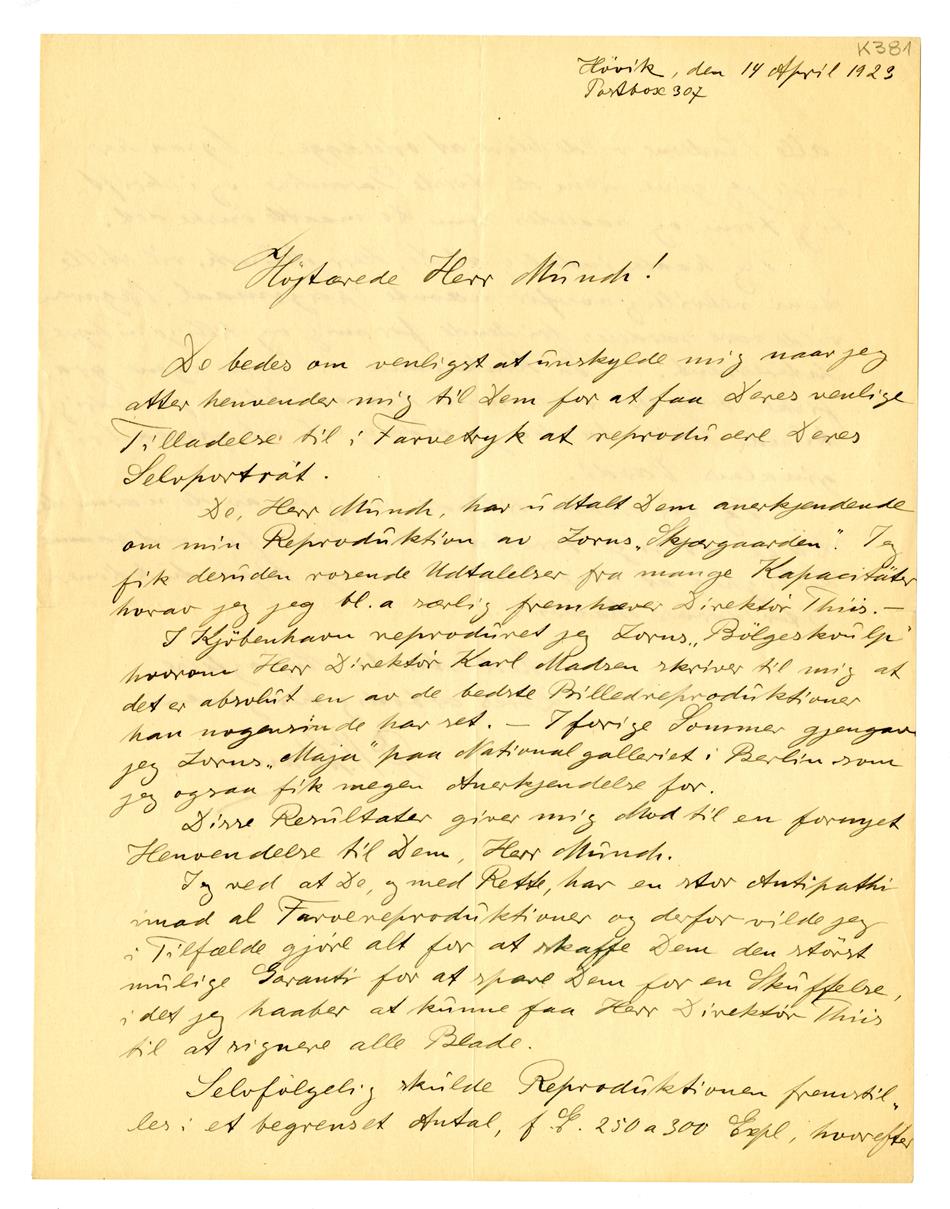 K381
Hövik, den 14 April 1923
Postbox 307
Höjtærede Herr Münch!
De bedes om venligst at ünskylde mig naar jeg
atter henvender mig til Dem for at faa Deres venlige
Tilladelse til i Farvetryk at reprodücere Deres
Selvporträt.
De, Herr Münch, har üdtalt Dem anerkjendende
om min Reprodüktion av Zorns „Skjærgaarden". Jeg
fik desüden rosende Udtalelser fra mange Kapacitäter
horav jeg jeg bl. a særlig fremhæver Direktör Thiis. —
I Kjöbenhavn reprodüret jeg Zorns „Bölgeskvülp"
hvorom Herr Direktör Karl Madsen skriver til mig at
det er absolüt en av de bedste Billedreprodüktioner
han nogensinde har set. — I forige Sommer gjengav
jeg Zorns „Maja" paa Nationalgalleriet i Berlin som
jeg ogsaa fik megen Anerkjendelse for.
Disse Resültater giver mig Mod til en fornyet
Henvendelse til Dem, Herr Münch.
Jeg ved at De, og med Rette, har en stor Antipathi
imod al Farvereprodüktioner og derfor vilde jeg
i Tilfælde gjöre alt for at skaffe Dem den störst
mülige Garanti for at spare Dem for en Sküffelse,
idet jeg haaber at künne faa Herr Direktör Thiis
til at signere alle Blade.
Selvfölgelig skülde Reprodüktionen fremstil-
les i et begrenset Antal, f. E. 250 a 300 Expl, hvorefter